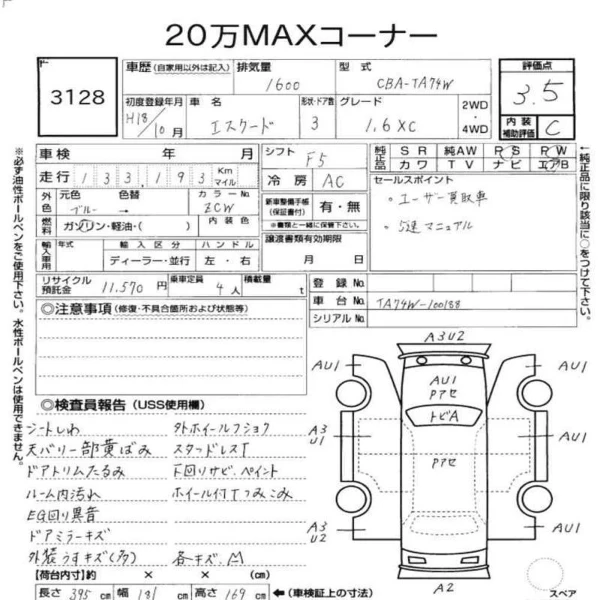 20万MAXコーナー
3128
車歴 (自家用以外は記入) 排気量 型式 評価点
1600 CBA-TA74W 3.5
初度登録年月 車名 形状・ドア数 グレード 2WD・4WD 内装補助評価 C
H18/10月 エスクード 3 1.6 XC
車検 年 月 シフト F5 純正品 SR 純AW PS PW
カワ TV ナビ エアB
走行 133,193 Km マイル 冷房 AC セールスポイント
外色 元色 色替 カラーNo. 新車整備手帳(保証書付) 有・無 ・ユーザー買取車
ブルー → ZCW ※書類と一緒に保管下さい。 ・5速マニュアル
燃料 ガソリン・軽油・( ) 内装色 譲渡書類有効期限
月 日
輸入車用 年式 輸入区分 ハンドル
ディーラー・並行 左・右
リサイクル預託金 11,570円 乗車定員 4人 積載量 t 登録No.
車台No. TA74W-100188
シリアルNo.
◎注意事項 (修復・不具合箇所および状態等)
※必ず油性ボールペンをご使用下さい。水性ボールペンは使用できません。
←純正品に限り該当に○をつけて下さい。
◎検査員報告 (USS使用欄)
シートしわ 外ホイールフショク
天バリ一部黄ばみ スタッドレスT
ドアトリムたるみ 下回りサビ、ペイント
ルーム内汚れ ホイール付Tつみこみ
EG回り異音
ドアミラーキズ
外装うすキズ(多) 各キズ、凹
A3U2
AU1 AU1 AU1
Pアセ
トビA
A3U1 Pアセ AU1
A3U2 AU1
A2
スペア
【荷台内寸】約 × × (cm)
長さ 395 cm 幅 181 cm 高さ 169 cm ←(車検証上の寸法)